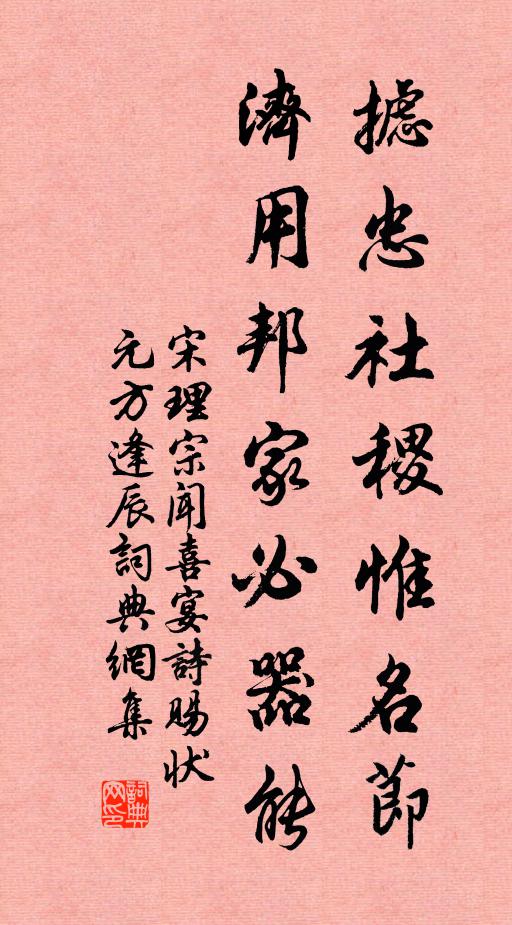 攄忠社稷惟名節
濟用邦家必器能
宋理宗聞喜宴詩賜状
元方逢辰詞典網集
詞典网印